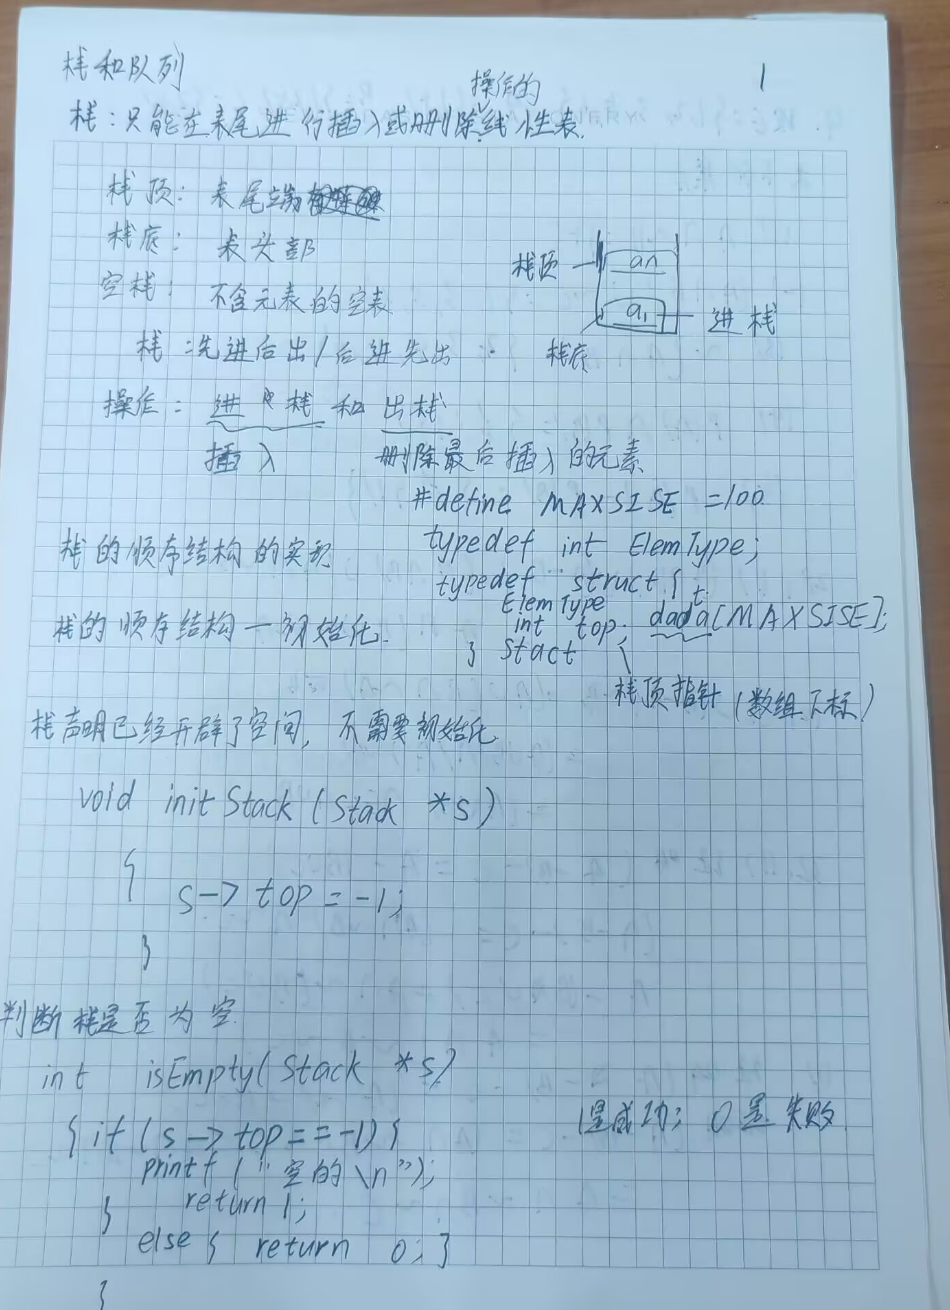 栈和队列
1
操作的
栈：只能在表尾进行插入或删除线性表.
栈顶：表尾端
栈底：表头部
空栈：不含元表的空表
栈顶
an
a1
进栈
栈底
栈：先进后出/后进先出
操作：进栈 和 出栈
插入 删除最后插入的元素
#define MAXSISE =100
栈的顺序结构的实现
typedef int ElemType;
typedef struct {
栈的顺序结构—初始化.
ElemType dada[MAXSISE];
t
int top;
} stact
栈顶指针 (数组下标)
栈声明已经开辟了空间，不需要初始化
void initStack (Stack *s)
{
s-> top = -1;
}
判断栈是否为空
int isEmpty(Stack *s)
{ if (s -> top == -1) {
1是成功；0是失败
printf ("空的\n");
return 1;
}
else { return 0; }
}